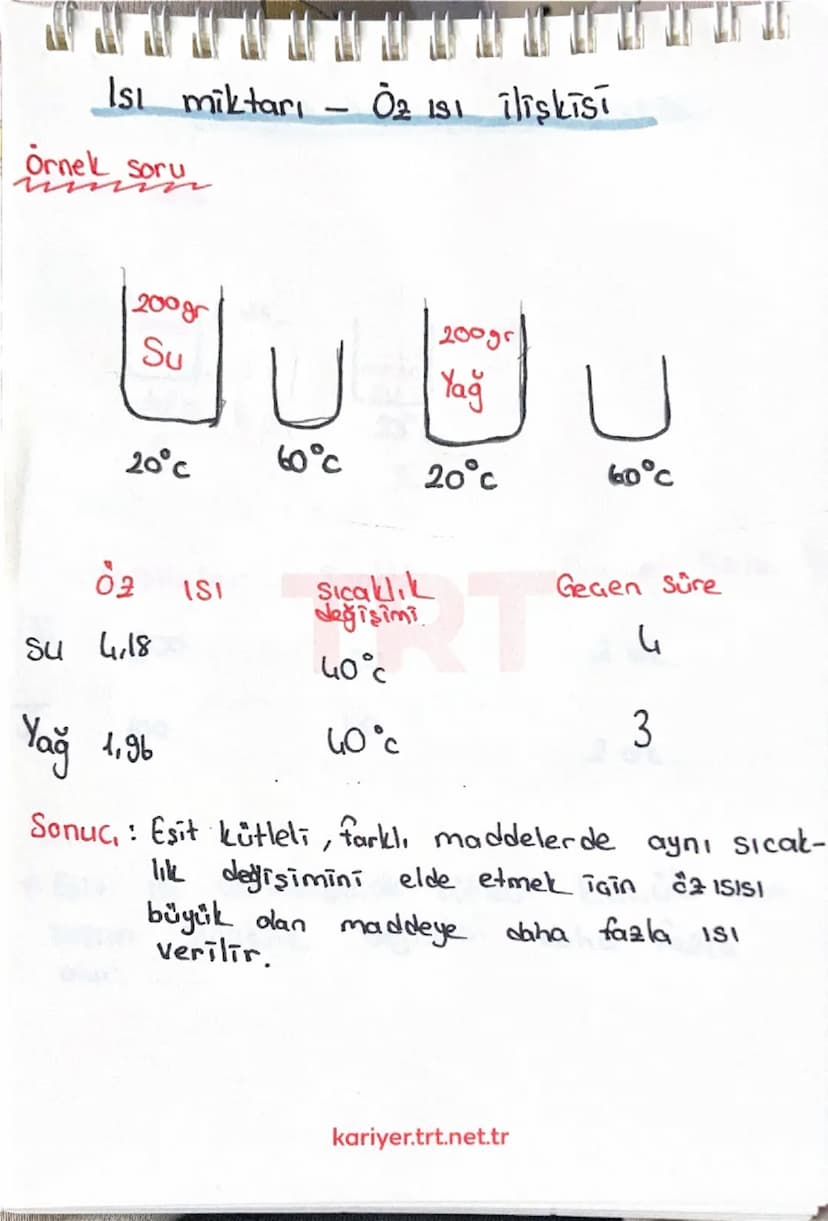 Isı miktarı – Öz ısı ilişkisi
Örnek soru
200gr
Su
20°c
60°c
200gr
Yağ
20°c
60°c
Öz ısı Sıcaklık değişimi Geçen süre
Su 4,18 40°c 4
Yağ 1,96 40°c 3
TRT
Sonuç : Eşit kütleli, farklı maddelerde aynı sıcak-
lık değişimini elde etmek için öz ısısı
büyük olan maddeye daha fazla ısı
verilir.
kariyer.trt.net.tr